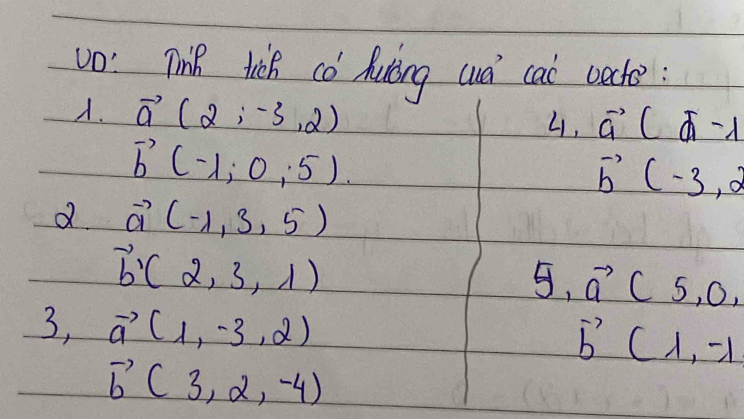 VD: Tính tích có hướng của các vectơ:
1. a⃗ (2; -3, 2)
b⃗ (-1; 0; 5).
2. a⃗ (-1, 3, 5)
b⃗ (2, 3, 1)
3, a⃗ (1, -3, 2)
b⃗ (3, 2, -4)
4, a⃗ ( -1
b⃗ (-3, 2
5, a⃗ ( 5, 0,
b⃗ (1, -1